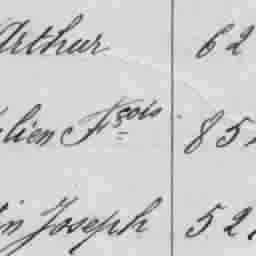 Arthur 62
lien Fçois 85
in Joseph 52